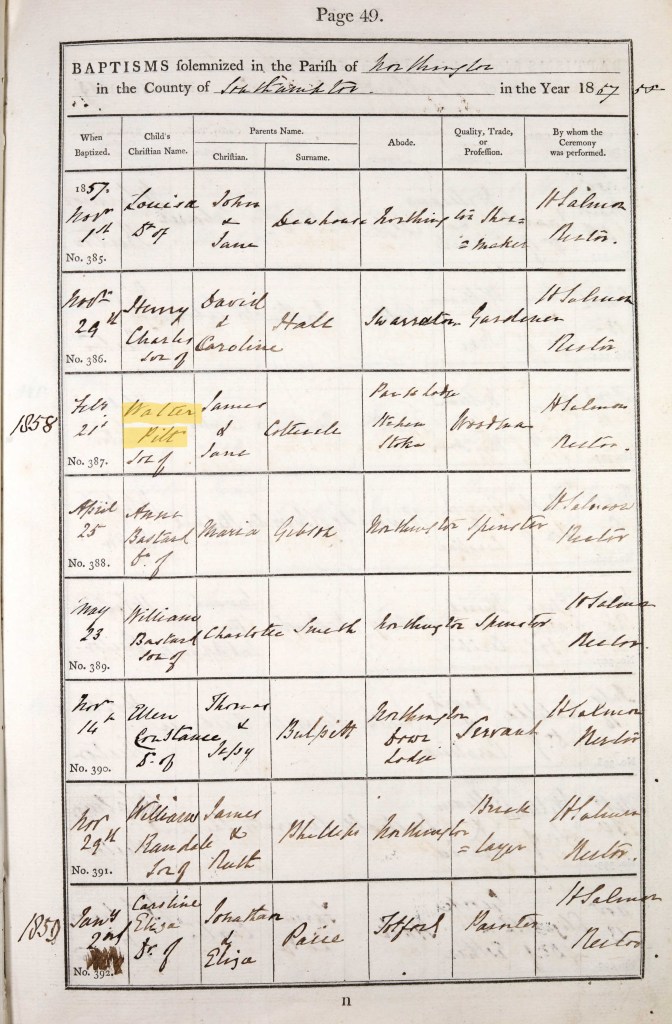 Page 49.
BAPTISMS solemnized in the Parish of Northington
in the County of Southampton in the Year 1857 58
When Baptized.
Child's Christian Name.
Parents Name.
Christian.
Surname.
Abode.
Quality, Trade, or Profession.
By whom the Ceremony was performed.
1857.
Novr 1st
No. 385.
Louisa Dr of
John & Jane
Dewhouse
Northington
Shoe=maker
H Salmon Rector.
Novr 29th
No. 386.
Henry Charles son of
David & Caroline
Hall
Swarraton
Gardener
H Salmon Rector
1858
Feby 21st
No. 387.
Walter Pilt son of
James & Jane
Park Lodge
Stoke
Woodman
H Salmon Rector.
April 25
No. 388.
Anne Bastard Dr of
Maria
Gibson
Northington
Spinster
H Salmon Rector
May 23
No. 389.
William Bastard son of
Charlotte
Smith
Northington
Spinster
H Salmon Rector.
Novr 14th
No. 390.
Ellen Constance Dr of
Thomas &
Bulpitt
Northington Down Lodge
Servant
H Salmon Rector
Novr 29th
No. 391.
William Randale Son of
James & Ruth
Phillips
Northington
Brick=layer
H Salmon Rector.
1859
Jany 2nd
No. 392.
Caroline Eliza Dr of
Jonathan & Eliza
Paice
Totford
Painter
H Salmon Rector
n